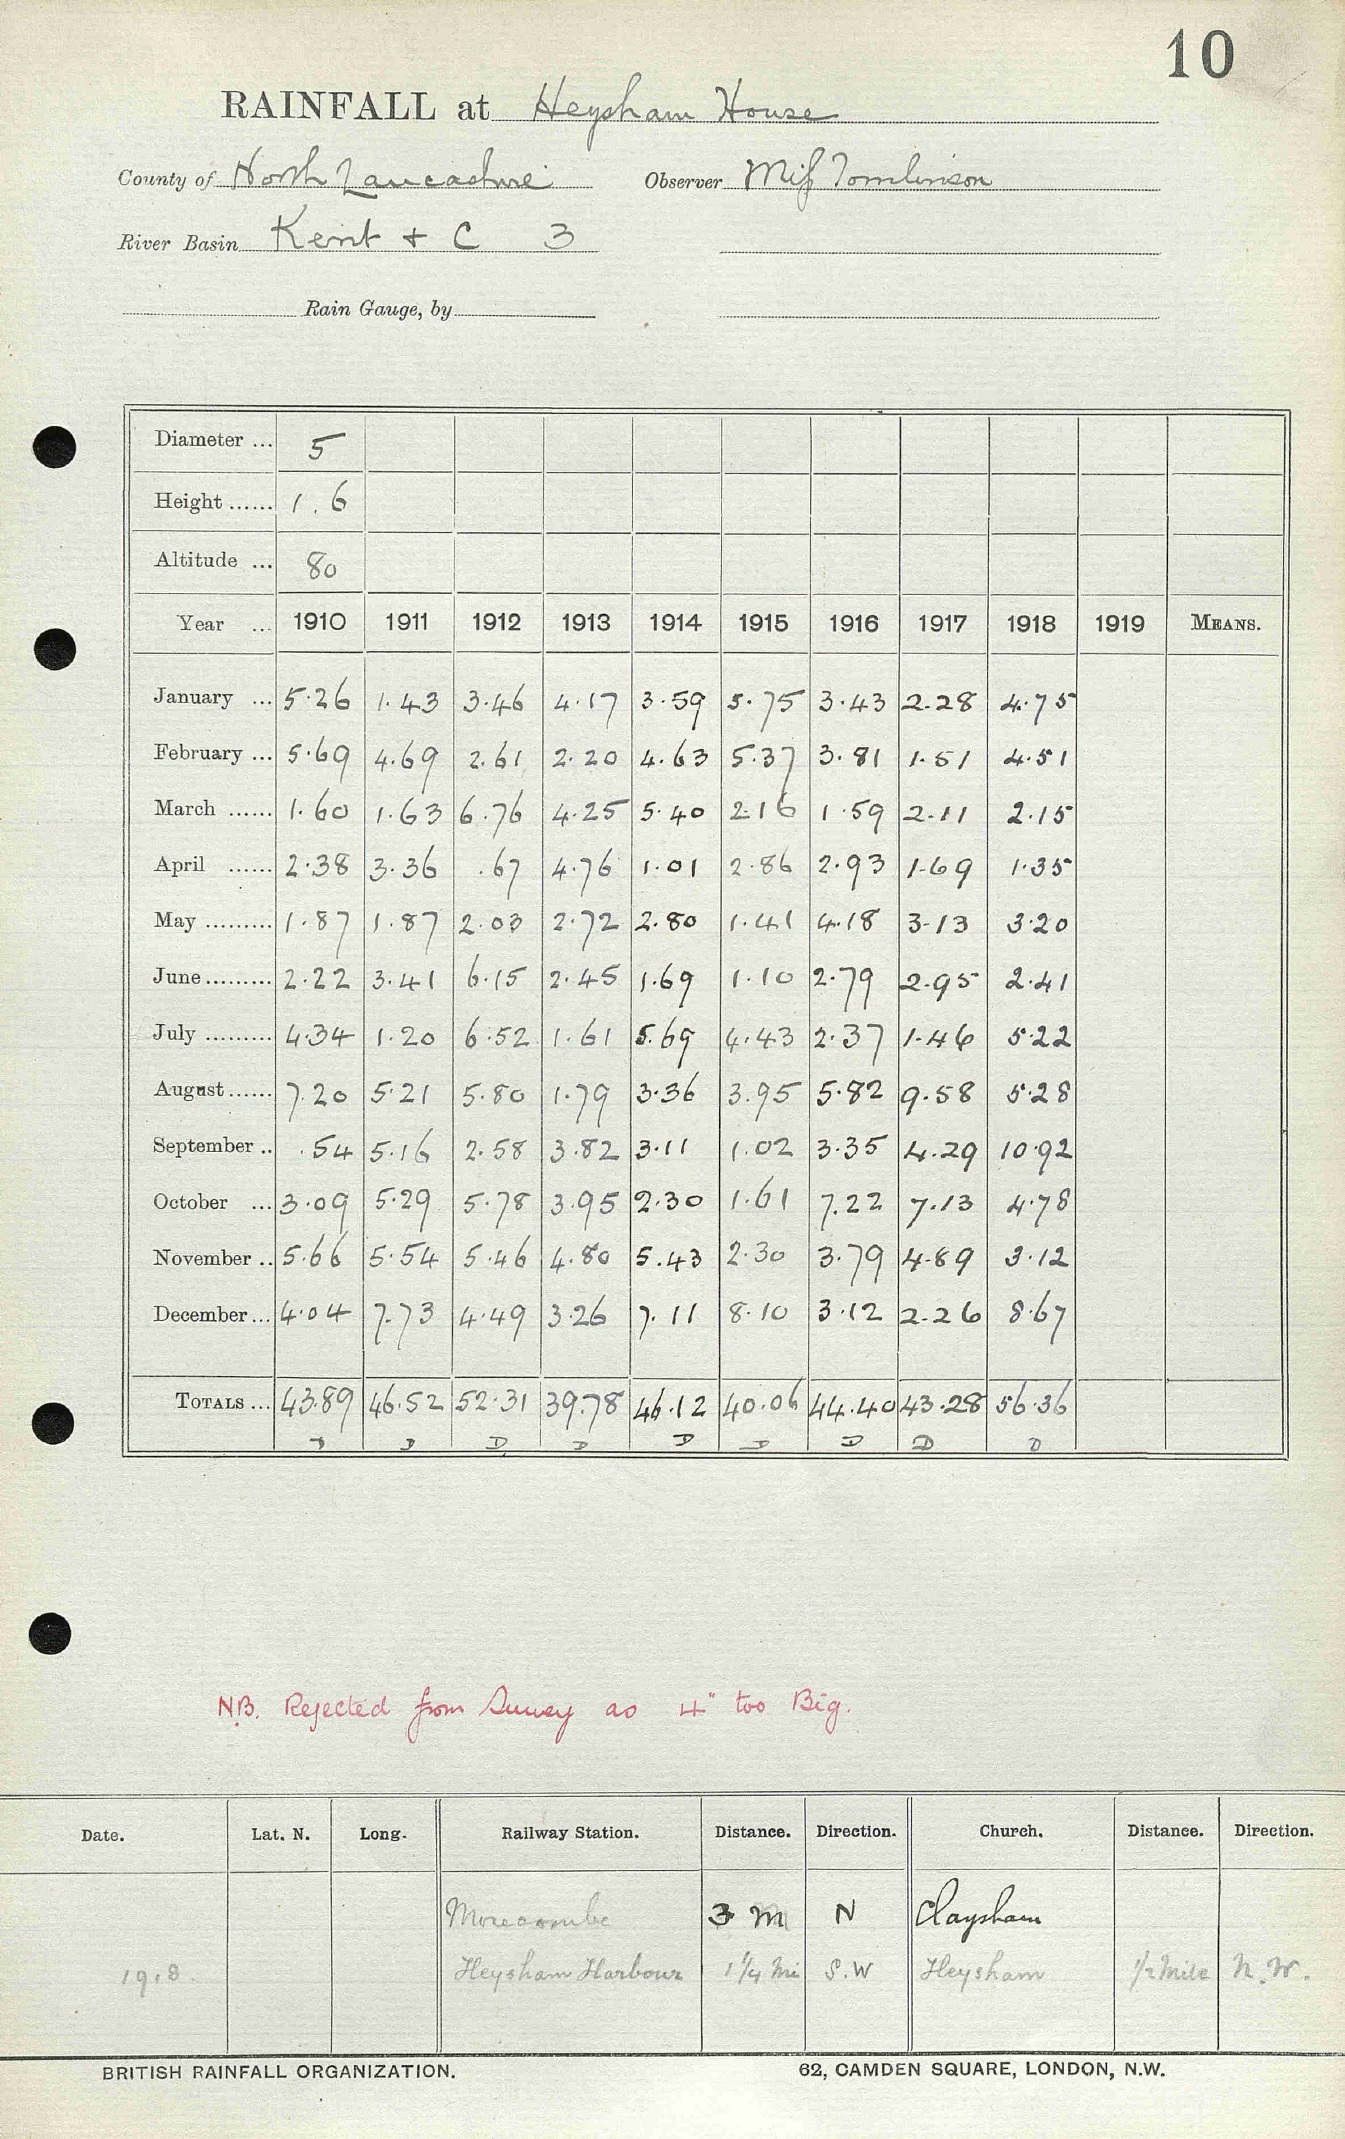 10
RAINFALL at Heysham House
County of North Lancashire Observer Miss Tomlinson
River Basin Kent + C 3
Rain Gauge, by
Diameter ... 5
Height ...... 1.6
Altitude ... 80
Year ... 1910 1911 1912 1913 1914 1915 1916 1917 1918 1919 MEANS.
January ... 5.26 1.43 3.46 4.17 3.59 5.75 3.43 2.28 4.75
February ... 5.69 4.69 2.61 2.20 4.63 5.37 3.81 1.51 4.51
March ...... 1.60 1.63 6.76 4.25 5.40 2.16 1.59 2.11 2.15
April ...... 2.38 3.36 .67 4.76 1.01 2.86 2.93 1.69 1.35
May ......... 1.87 1.87 2.03 2.72 2.80 1.41 4.18 3.13 3.20
June ......... 2.22 3.41 6.15 2.45 1.69 1.10 2.79 2.95 2.41
July ......... 4.34 1.20 6.52 1.61 5.69 4.43 2.37 1.46 5.22
August ...... 7.20 5.21 5.80 1.79 3.36 3.95 5.82 9.58 5.28
September .. .54 5.16 2.58 3.82 3.11 1.02 3.35 4.29 10.92
October ... 3.09 5.29 5.78 3.95 2.30 1.61 7.22 7.13 4.78
November .. 5.66 5.54 5.46 4.80 5.43 2.30 3.79 4.89 3.12
December ... 4.04 7.73 4.49 3.26 7.11 8.10 3.12 2.26 8.67
TOTALS ... 43.89 46.52 52.31 39.78 46.12 40.06 44.40 43.28 56.36
D D D D D D D D D
N.B. Rejected from Survey as 4" too Big.
Date. Lat. N. Long. Railway Station. Distance. Direction. Church. Distance. Direction.
Morecombe 3 m N Claysham
1918. Heysham Harbour 1 1/4 mi S.W Heysham 1/2 mile N.W.
BRITISH RAINFALL ORGANIZATION. 62, CAMDEN SQUARE, LONDON, N.W.